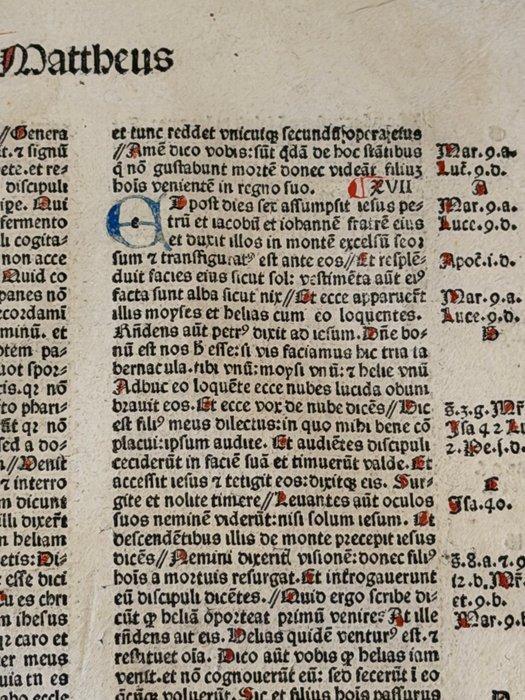 Mattheus
//Genera
t. ⁊ signū
ete. et re-
discipuli
ipe. Qui
fermento
li cogita-
non acce
Quid co
panes nō
recordami
minū. et
ptem pa-
uot spor-
cis. qr nō
to phari-
āt qr nō
sed a do-
//Uenit
⁊ interro
m dicunt
illi dixert
n heliam
etis: Di-
esse dici
u es chri
m ihesus
qr caro et
ter meus
uia tn es
et tunc reddet vnicuiqȝ secundū opera eius
//Amē dico vobis: sūt qdā de hoc stātibus
q̄ nō gustabunt mortē donec videāt filiuȝ
hoīs venientē in regno suo. XVII
Et post dies sex assumpsit iesus pe-
trū et iacobū et iohannē fratrē eius
et duxit illos in montē excelsū seor
sum ⁊ transfiguratꝰ est ante eos//Et resplē-
duit facies eius sicut sol: vestimēta aūt eiꝰ
facta sunt alba sicut nix//Et ecce apparuert
illis moyses et helias cum eo loquentes.
Rn̄dens aūt petrꝰ dixit ad iesum. Dn̄e bo-
nū est nos hͨ esse: si vis faciamus hic tria ta
bernacula. tibi vnū: moysi vnū: ⁊ helie vnū
Adhuc eo loquēte ecce nubes lucida obum
brauit eos. Et ecce vox de nube dicēs//Hic
est filiꝰ meus dilectus: in quo mihi bene cō
placui: ipsum audite. Et audiētes discipuli
ceciderūt in faciē suā et timuerūt valde. Et
accessit iesus ⁊ tetigit eos: dixitqȝ eis. Sur-
gite et nolite timere//Leuantes aūt oculos
suos neminē viderūt: nisi solum iesum. Et
descendētibus illis de monte precepit iesus
dicēs//Nemini dixeritꝭ visionē: donec filiꝰ
hoīs a mortuis resurgat. Et introgauerunt
eū discipuli dicētes. //Quid ergo scribe di-
cūt qꝫ heliā oporteat primū venire? At ille
rn̄dens ait eis. Helias quidē venturꝰ est. ⁊
restituet oīa. Dico aūt vobis qꝫ helias iam
venit. et nō cognouerūt eū: sed fecerūt ī eo
q̄cūqȝ voluerūt. Sic et filius hoīs passurus
Mar. 9. a.
Luc̄. 9. d.
A
Mar. 9. a.
Luce. 9. d.
Apoc̄. i. d.
Mar. 9. a.
Luce. 9. d.
B
Isa 42
2. Pe. i. d.
C
Isa. 40.
et. 9. b.
Mar. 9. b
D